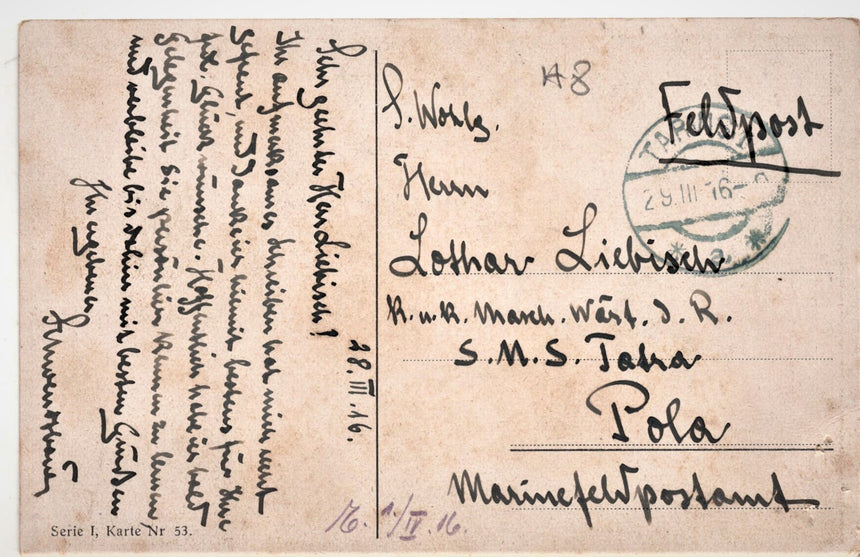 Sehr geehrter Herr Liebisch!
28.III.16.
Ihr aufmerksames Schreiben hat mich sehr
gefreut, und danke ich hiemit bestens für Ihre
Glückwünsche. Hoffentlich habe ich bald
Gelegenheit Sie persönlich kennen zu lernen
und verbleibe bis dahin mit besten Grüßen
Ihr ergebener
Serie I, Karte Nr 53.
48
Feldpost
TAR
29.III 16
a
S. Wohlg.
Herrn
Lothar Liebisch
K. u. K. Masch. Wärt. d. R.
S. M. S. Tatra
Pola
Marinefeldpostamt
1/IV. 16.